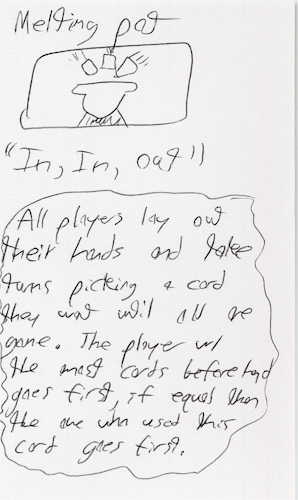 Melting pot
"In, In, out"
All players lay out
their hands and take
turns picking a card
they want until all are
gone. The player w/
the most cards beforehand
goes first, if equal then
the one who used this
card goes first.